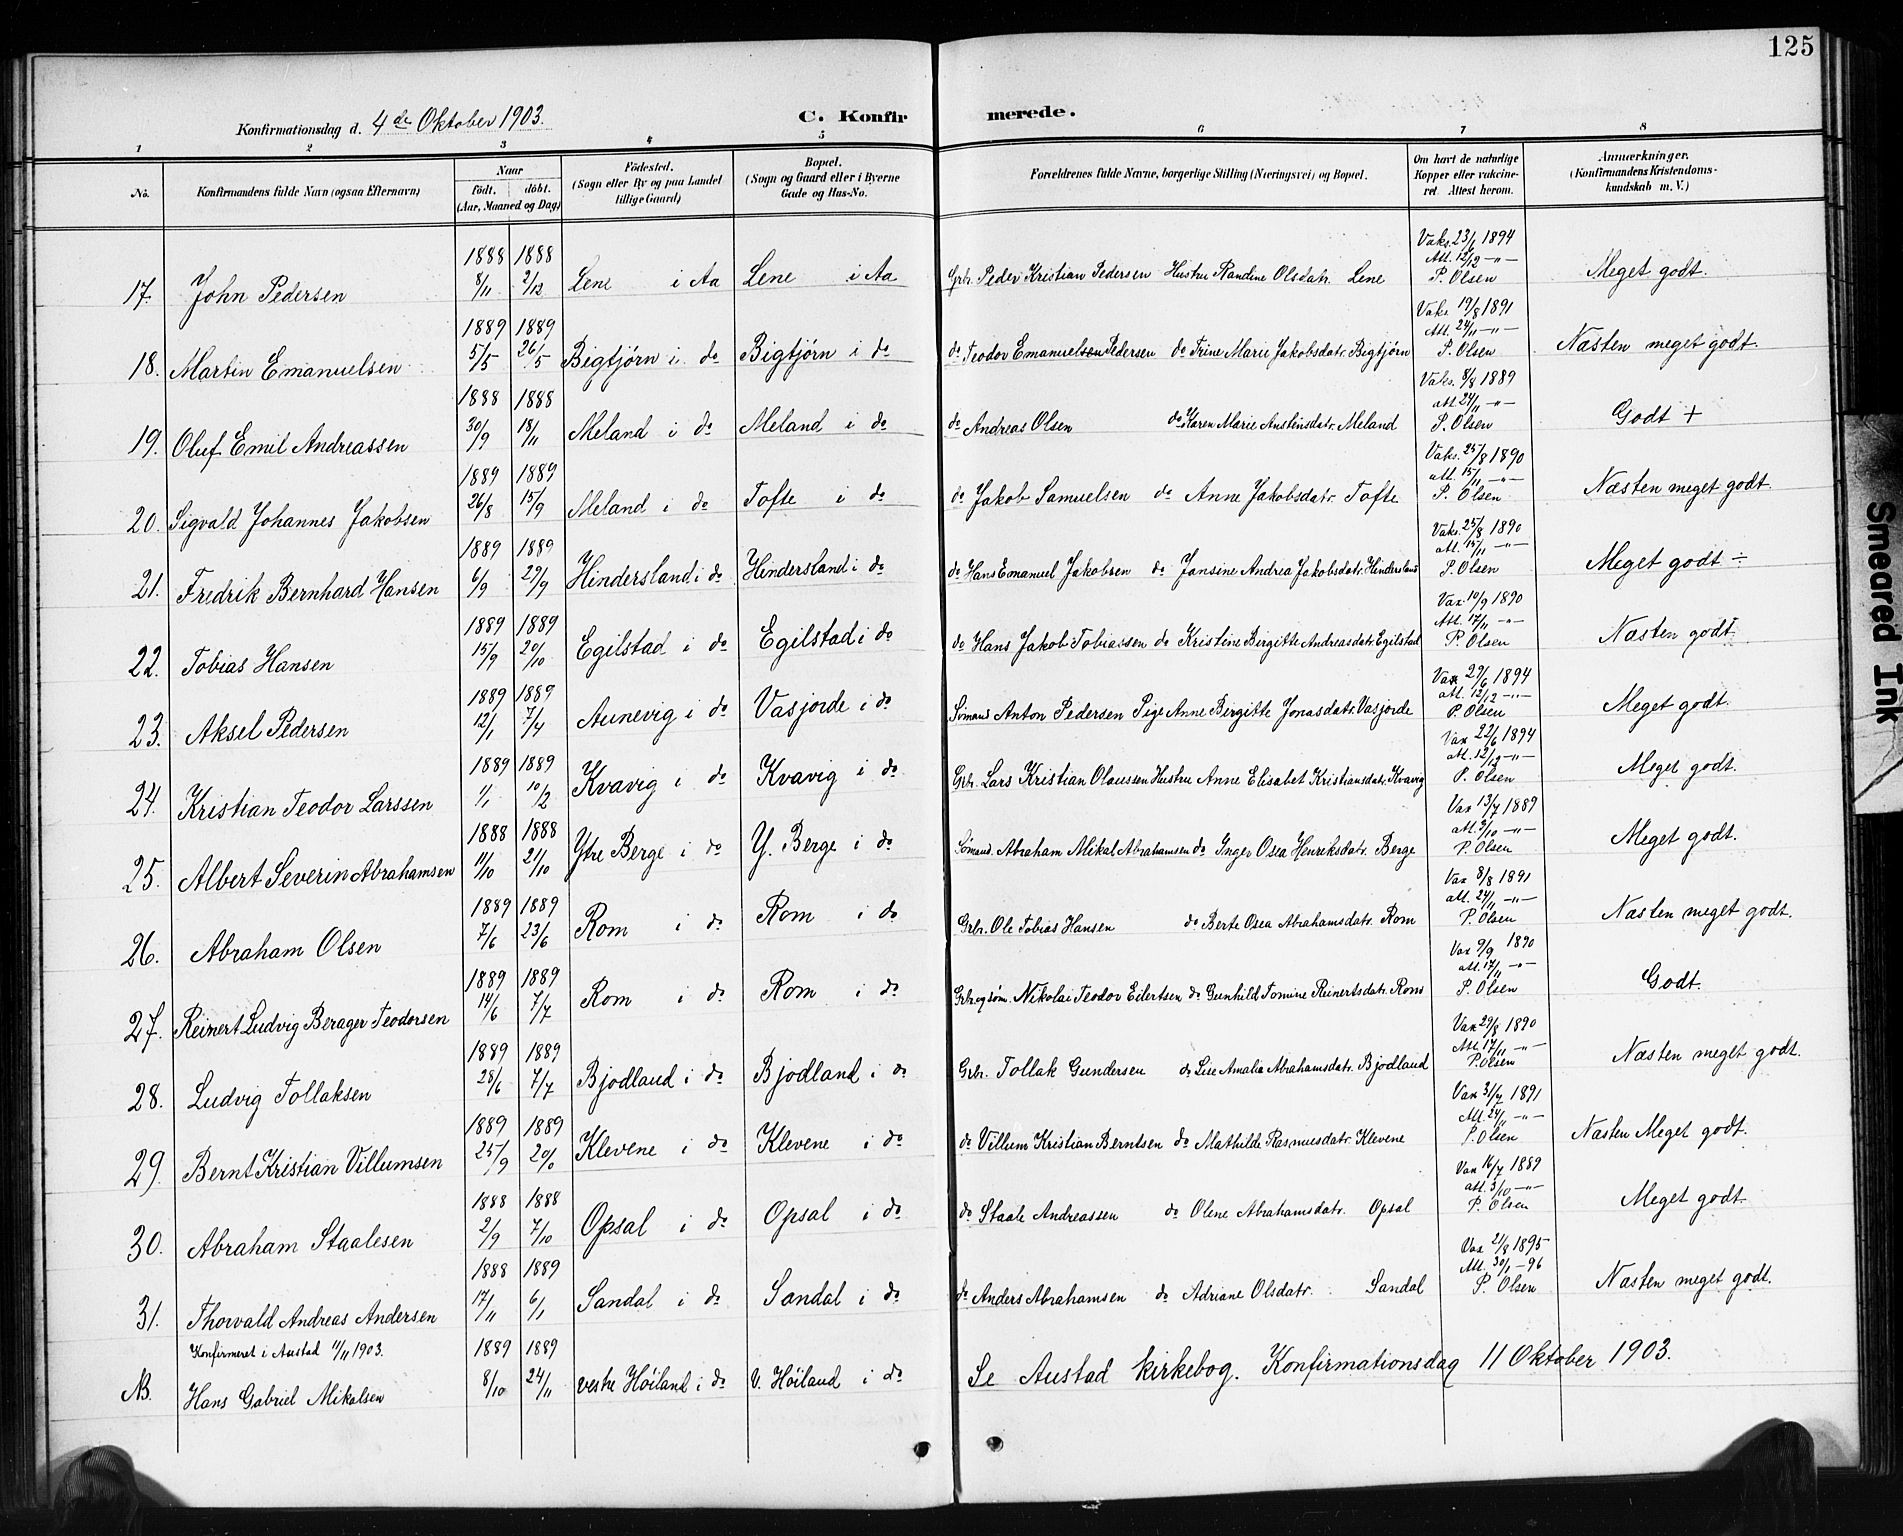 125
Konfirmationsdag d. 4de Oktober 1903.
C. Konfirmerede.
1 2 3 4 5 6 7 8
No.
Konfirmandens fulde Navn (ogsaa Efternavn)
Naar
født. døbt.
(Aar, Maaned og Dag)
Fødested.
(Sogn eller By og paa Landet
tillige Gaard)
Bopæl.
(Sogn og Gaard eller i Byerne
Gade og Hus-No.
Forældrenes fulde Navne, borgerlige Stilling (Næringsvei) og Bopæl.
Om havt de naturlige
Kopper eller vakcine-
ret. Attest herom.
Anmærkninger.
(Konfirmandens Kristendoms-
kundskab m. V.)
17. John Pedersen 1888 8/11 1888 2/12 Lene i Aa Lene i Aa Gbr. Peder Kristian Pedersen Hustru Randine Olsdatr. Lene Vaks. 23/6 1894 Att. 12/12 -"- P. Olsen Meget godt.
18. Martin Emanuelsen 1889 5/5 1889 26/5 Bigtjørn i do Bigtjørn i do do Teodor Emanuelsen Pedersen do Trine Marie Jakobsdatr. Bigtjørn Vaks. 19/8 1891 Att. 24/11 -"- P. Olsen Næsten meget godt.
19. Oluf Emil Andreassen 1888 30/9 1888 18/11 Meland i do Meland i do do Andreas Olsen do Karen Marie Austensdatr. Meland Vaks. 8/8 1889 att. 24/11 -"- P. Olsen Godt +
20. Sigvald Johannes Jakobsen 1889 26/8 1889 15/9 Meland i do Tofte i do do Jakob Samuelsen do Anne Jakobsdatr. Tofte Vaks. 25/8 1890 att. 15/11 -"- P. Olsen Næsten meget godt.
21. Fredrik Bernhard Hansen 1889 6/9 1889 29/9 Hindersland i do Hindersland i do do Hans Emanuel Jakobsen do Jansine Andrea Jakobsdatr. Hindersland Vaks. 25/8 1890 att. 15/11 -"- P. Olsen Meget godt ÷
22. Tobias Hansen 1889 15/9 1889 20/10 Egilstad i do Egilstad i do do Hans Jakob Tobiassen do Kristine Birgitte Andreasdatr. Egilstad Vax. 10/9 1890 Att. 17/11 -"- P. Olsen Næsten godt.
23. Aksel Pedersen 1889 12/1 1889 7/4 Aunevig i do Vasjorde i do Sömand Anton Pedersen Pige Anne Birgitte Jonasdatr. Vasjorde Vax 29/6 1894 att. 12/12 -"- P. Olsen Meget godt.
24. Kristian Teodor Larssen 1889 1/1 1889 10/2 Kvavig i do Kvavig i do Gbr. Lars Kristian Olaussen Hustru Anne Elisabet Kristiansdatr. Kvavig Vax 22/6 1894 att. 12/12 -"- P. Olsen Meget godt.
25. Albert Severin Abrahamsen 1888 11/10 1888 21/10 Ytre Berge i do Y. Berge i do Sömand. Abraham Mikal Abrahamsen do Inger Osea Henriksdatr. Berge Vax 13/7 1889 att. 3/10 -"- P. Olsen Meget godt.
26. Abraham Olsen 1889 7/6 1889 23/6 Rom i do Rom i do Gbr. Ole Tobias Hansen do Berte Osea Abrahamsdatr. Rom Vax 8/8 1891 att. 24/11 -"- P. Olsen Næsten meget godt.
27. Reinert Ludvig Berager Teodorsen 1889 14/6 1889 7/7 Rom i do Rom i do Gbr. og søm. Nikolai Teodor Eilertsen do Gunhild Tomine Reinertsdatr. Rom Vax 9/9 1890 att. 17/11 -"- P. Olsen Godt.
28. Ludvig Tollaksen 1889 28/6 1889 7/7 Bjodland i do Bjodland i do Gbr. Tollak Gundersen do Lise Amalia Abrahamsdatr. Bjodland Vax 29/8 1890 Att. 17/11 -"- P. Olsen Næsten meget godt.
29. Bernt Kristian Villumsen 1889 25/9 1889 20/10 Klevene i do Klevene i do do Villum Kristian Berntsen do Mathilde Rasmusdatr. Klevene Vax 31/7 1891 Att. 24/11 -"- P. Olsen Næsten Meget godt.
30. Abraham Staalesen 1888 2/9 1888 7/10 Opsal i do Opsal i do do Staale Andreassen do Olene Abrahamsdatr. Opsal Vax 16/7 1889 att. 3/10 -"- P. Olsen Meget godt.
31. Thorvald Andreas Andersen 1888 17/11 1889 6/1 Sandal i do Sandal i do do Anders Abrahamsen do Adriane Olsdatr. Sandal Vax 2/8 1895 Att. 30/1 -96 P. Olsen Næsten meget godt.
Konfirmeret i Austad 11/11 1903.
NB. Hans Gabriel Mikalsen 1889 8/10 1889 24/11 vestre Höiland i do V. Höiland i do Se Austad kirkebog. Konfirmationsdag 11 Oktober 1903.
Smeared Ink